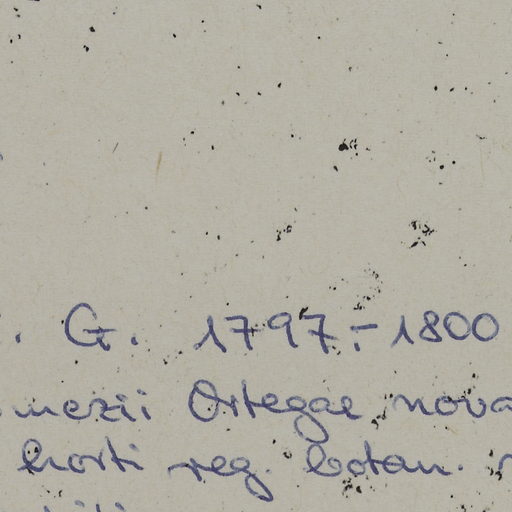 . G. 1797.-1800
mezii Ortegae nova
horti reg. botan.